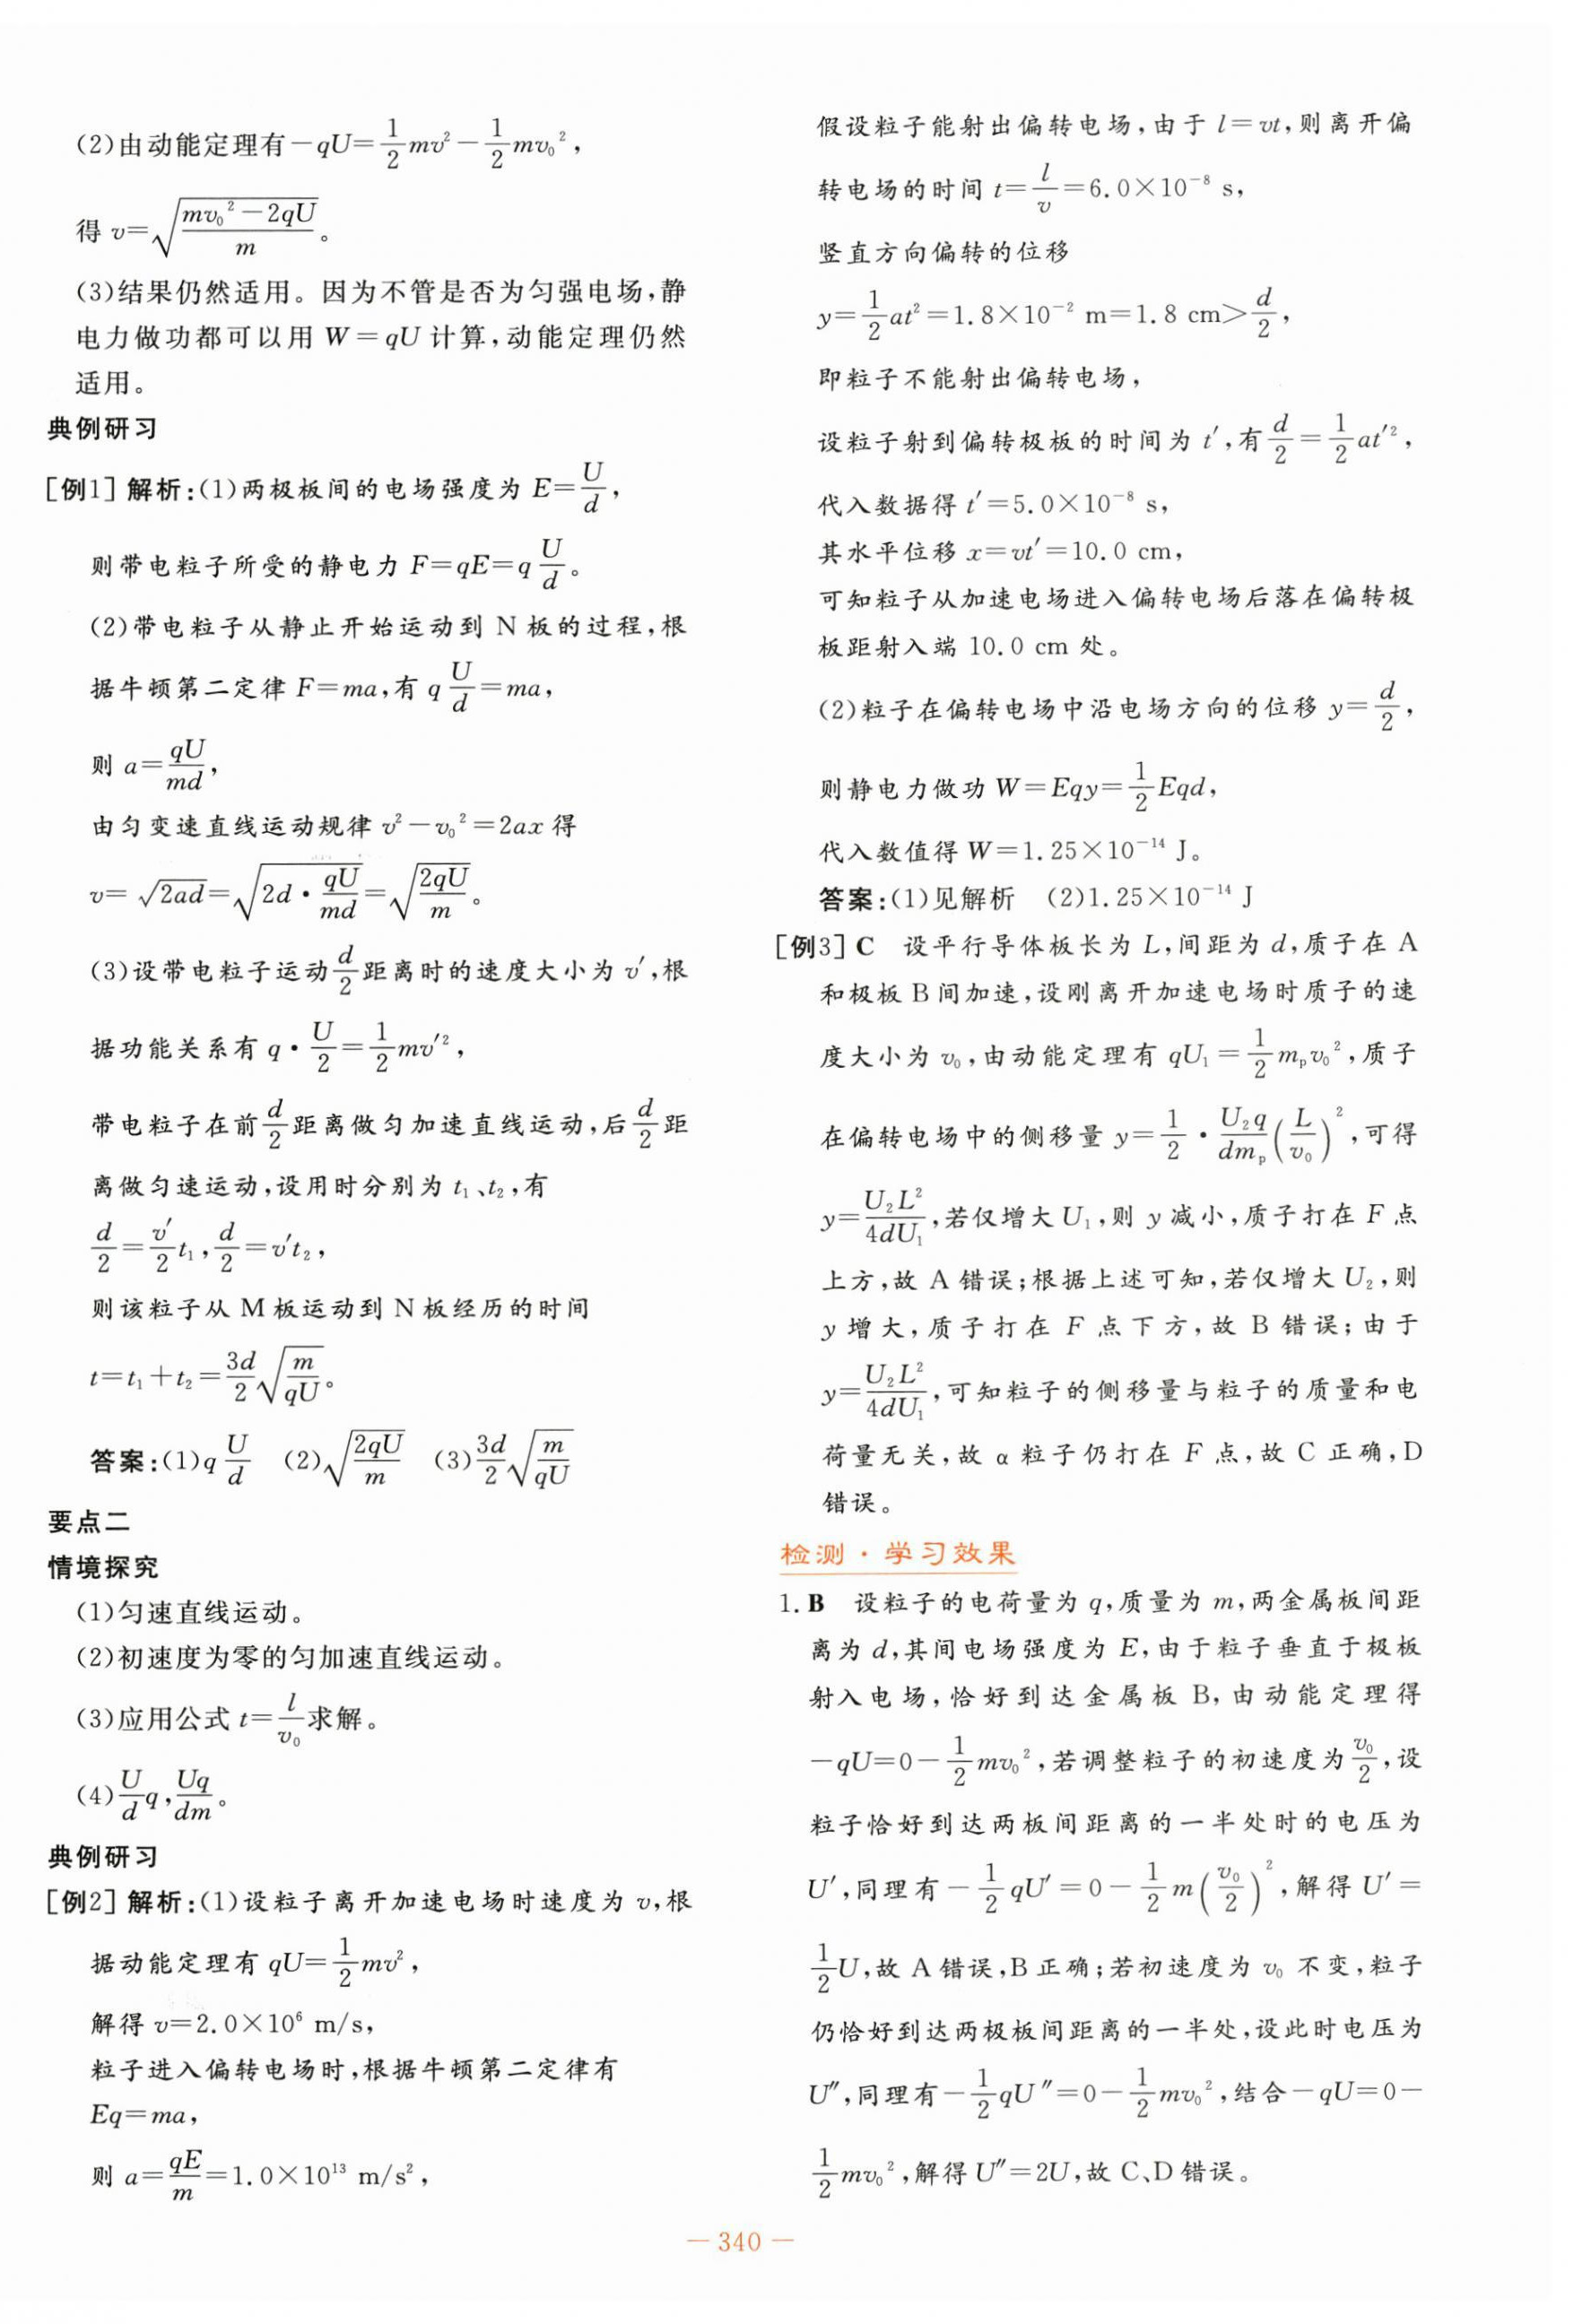 (2)由动能定理有－qU=\frac{1}{2}mv²－\frac{1}{2}mv₀²，
得 v=\sqrt{\frac{mv₀²－2qU}{m}}。
(3)结果仍然适用。因为不管是否为匀强电场，静
电力做功都可以用 W＝qU 计算，动能定理仍然
适用。
典例研习
［例1］解析：(1)两极板间的电场强度为 E=\frac{U}{d}，
则带电粒子所受的静电力 F=qE=q\frac{U}{d}。
(2)带电粒子从静止开始运动到 N 板的过程，根
据牛顿第二定律 F=ma，有 q\frac{U}{d}=ma，
则 a=\frac{qU}{md}，
由匀变速直线运动规律 v²－v₀²=2ax 得
v=\sqrt{2ad}=\sqrt{2d·\frac{qU}{md}}=\sqrt{\frac{2qU}{m}}。
(3)设带电粒子运动\frac{d}{2}距离时的速度大小为 v′，根
据功能关系有 q·\frac{U}{2}=\frac{1}{2}mv′²，
带电粒子在前\frac{d}{2}距离做匀加速直线运动，后\frac{d}{2}距
离做匀速运动，设用时分别为 t₁、t₂，有
\frac{d}{2}=\frac{v′}{2}t₁，\frac{d}{2}=v′t₂，
则该粒子从 M 板运动到 N 板经历的时间
t=t₁＋t₂=\frac{3d}{2}\sqrt{\frac{m}{qU}}。
答案：(1)q\frac{U}{d}　(2)\sqrt{\frac{2qU}{m}}　(3)\frac{3d}{2}\sqrt{\frac{m}{qU}}
要点二
情境探究
(1)匀速直线运动。
(2)初速度为零的匀加速直线运动。
(3)应用公式 t=\frac{l}{v₀}求解。
(4)\frac{U}{d}q，\frac{Uq}{dm}。
典例研习
［例2］解析：(1)设粒子离开加速电场时速度为 v，根
据动能定理有 qU=\frac{1}{2}mv²，
解得 v=2.0×10⁶ m/s，
粒子进入偏转电场时，根据牛顿第二定律有
Eq=ma，
则 a=\frac{qE}{m}=1.0×10¹³ m/s²，
假设粒子能射出偏转电场，由于 l=vt，则离开偏
转电场的时间 t=\frac{l}{v}=6.0×10⁻⁸ s，
竖直方向偏转的位移
y=\frac{1}{2}at²=1.8×10⁻² m=1.8 cm>\frac{d}{2}，
即粒子不能射出偏转电场，
设粒子射到偏转极板的时间为 t′，有\frac{d}{2}=\frac{1}{2}at′²，
代入数据得 t′=5.0×10⁻⁸ s，
其水平位移 x=vt′=10.0 cm，
可知粒子从加速电场进入偏转电场后落在偏转极
板距射入端 10.0 cm 处。
(2)粒子在偏转电场中沿电场方向的位移 y=\frac{d}{2}，
则静电力做功 W=Eqy=\frac{1}{2}Eqd，
代入数值得 W=1.25×10⁻¹⁴ J。
答案：(1)见解析　(2)1.25×10⁻¹⁴ J
［例3］C　设平行导体板长为 L，间距为 d，质子在 A
和极板 B 间加速，设刚离开加速电场时质子的速
度大小为 v₀，由动能定理有 qU₁=\frac{1}{2}mₚv₀²，质子
在偏转电场中的侧移量 y=\frac{1}{2}·\frac{U₂q}{dmₚ}(\frac{L}{v₀})²，可得
y=\frac{U₂L²}{4dU₁}，若仅增大 U₁，则 y 减小，质子打在 F 点
上方，故 A 错误；根据上述可知，若仅增大 U₂，则
y 增大，质子打在 F 点下方，故 B 错误；由于
y=\frac{U₂L²}{4dU₁}，可知粒子的侧移量与粒子的质量和电
荷量无关，故 α 粒子仍打在 F 点，故 C 正确，D
错误。
检测·学习效果
1. B　设粒子的电荷量为 q，质量为 m，两金属板间距
离为 d，其间电场强度为 E，由于粒子垂直于极板
射入电场，恰好到达金属板 B，由动能定理得
－qU=0－\frac{1}{2}mv₀²，若调整粒子的初速度为\frac{v₀}{2}，设
粒子恰好到达两板间距离的一半处时的电压为
U′，同理有－\frac{1}{2}qU′=0－\frac{1}{2}m(\frac{v₀}{2})²，解得 U′=
\frac{1}{2}U，故 A 错误，B 正确；若初速度为 v₀ 不变，粒子
仍恰好到达两极板间距离的一半处，设此时电压为
U″，同理有－\frac{1}{2}qU″=0－\frac{1}{2}mv₀²，结合－qU=0－
\frac{1}{2}mv₀²，解得 U″=2U，故 C、D 错误。
— 340 —